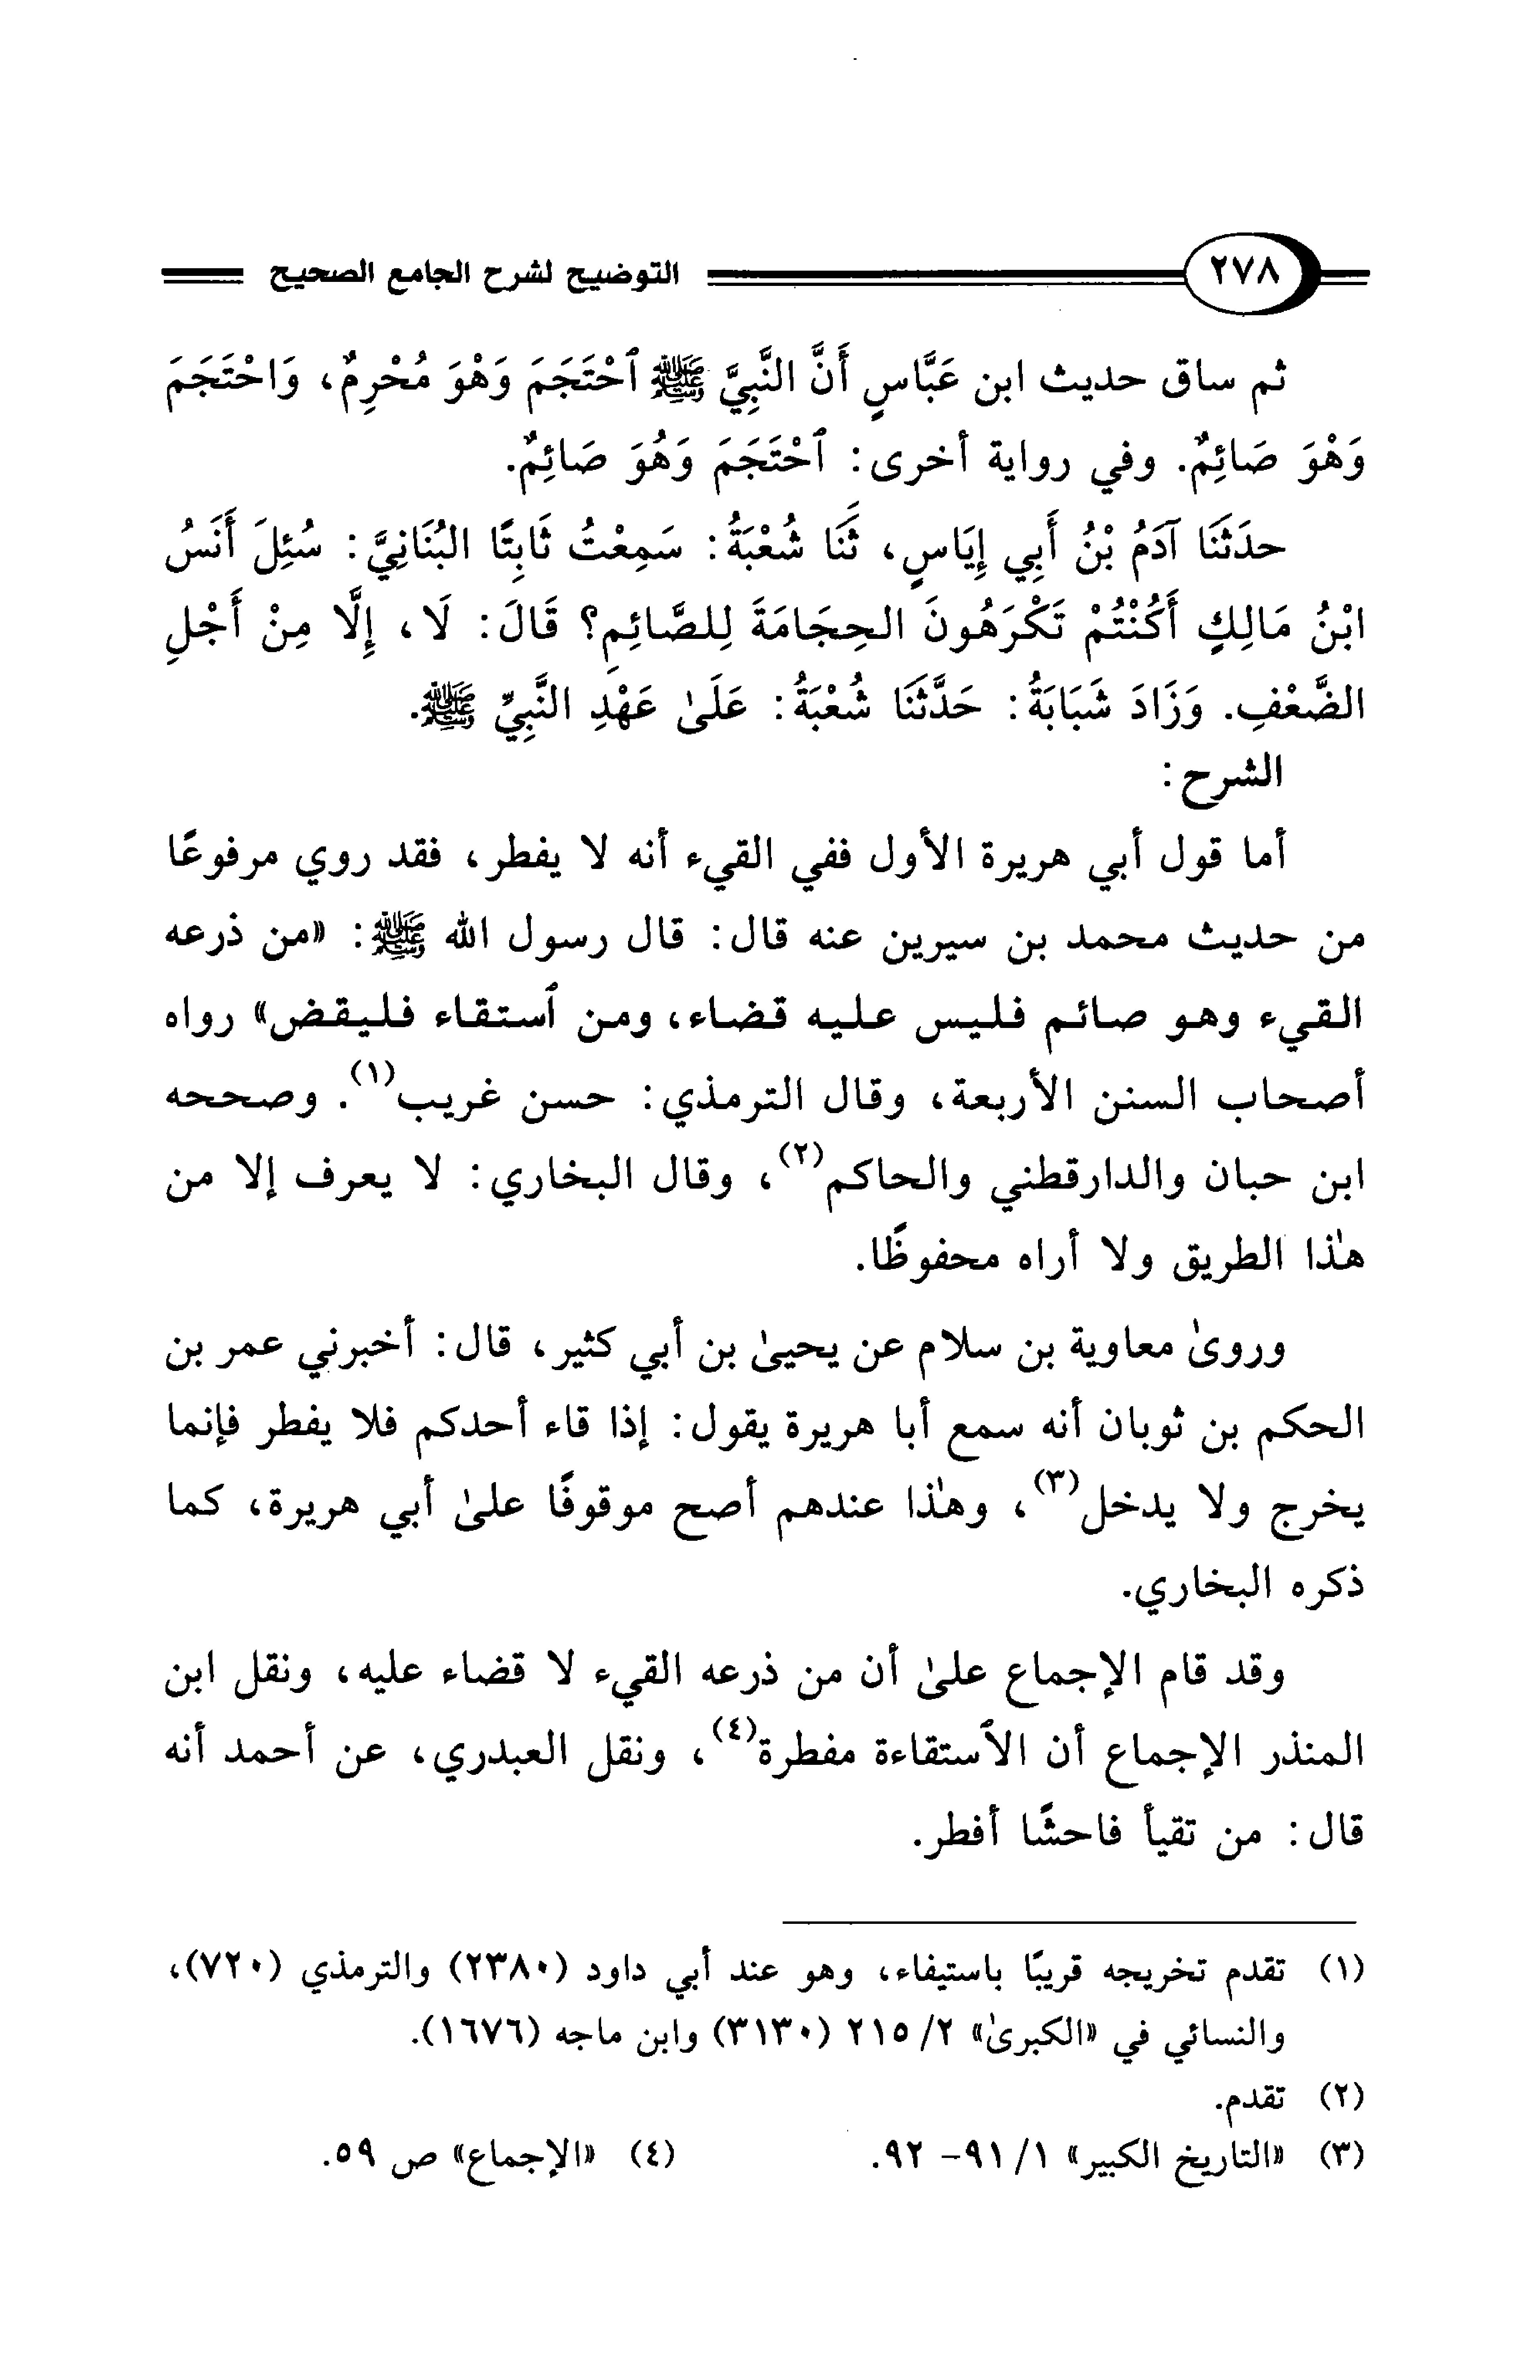 ٢٧٨ التوضيح لشرح الجامع الصحيح
ثم ساق حديث ابن عَبَّاسٍ أَنَّ النَّبِيَّ ﷺ ٱحْتَجَمَ وَهْوَ مُحْرِمٌ، وَاحْتَجَمَ
وَهْوَ صَائِمٌ. وفي رواية أخرى: ٱحْتَجَمَ وَهُوَ صَائِمٌ.
حدَثَنَا آدَمُ بْنُ أَبِي إِيَاسٍ، ثَنَا شُعْبَةُ: سَمِعْتُ ثَابِتًا البُنَانِيَّ: سُئِلَ أَنَسُ
ابْنُ مَالِكٍ أَكُنْتُمْ تَكْرَهُونَ الحِجَامَةَ لِلصَّائِمِ؟ قَالَ: لَا، إِلَّا مِنْ أَجْلِ
الضَّعْفِ. وَزَادَ شَبَابَةُ: حَدَّثَنَا شُعْبَةُ: عَلَىٰ عَهْدِ النَّبِيِّ ﷺ.
الشرح:
أما قول أبي هريرة الأول ففي القيء أنه لا يفطر، فقد روي مرفوعًا
من حديث محمد بن سيرين عنه قال: قال رسول الله ﷺ: «من ذرعه
القيء وهو صائم فليس عليه قضاء، ومن ٱستقاء فليقض» رواه
أصحاب السنن الأربعة، وقال الترمذي: حسن غريب(١). وصححه
ابن حبان والدارقطني والحاكم(٢)، وقال البخاري: لا يعرف إلا من
هٰذا الطريق ولا أراه محفوظًا.
وروىٰ معاوية بن سلام عن يحيىٰ بن أبي كثير، قال: أخبرني عمر بن
الحكم بن ثوبان أنه سمع أبا هريرة يقول: إذا قاء أحدكم فلا يفطر فإنما
يخرج ولا يدخل(٣)، وهٰذا عندهم أصح موقوفًا علىٰ أبي هريرة، كما
ذكره البخاري.
وقد قام الإجماع علىٰ أن من ذرعه القيء لا قضاء عليه، ونقل ابن
المنذر الإجماع أن الٱستقاءة مفطرة(٤)، ونقل العبدري، عن أحمد أنه
قال: من تقيأ فاحشًا أفطر.
(١) تقدم تخريجه قريبًا باستيفاء، وهو عند أبي داود (٢٣٨٠) والترمذي (٧٢٠)،
والنسائي في «الكبرىٰ» ٢/ ٢١٥ (٣١٣٠) وابن ماجه (١٦٧٦).
(٢) تقدم.
(٣) «التاريخ الكبير» ١/ ٩١- ٩٢. (٤) «الإجماع» ص ٥٩.